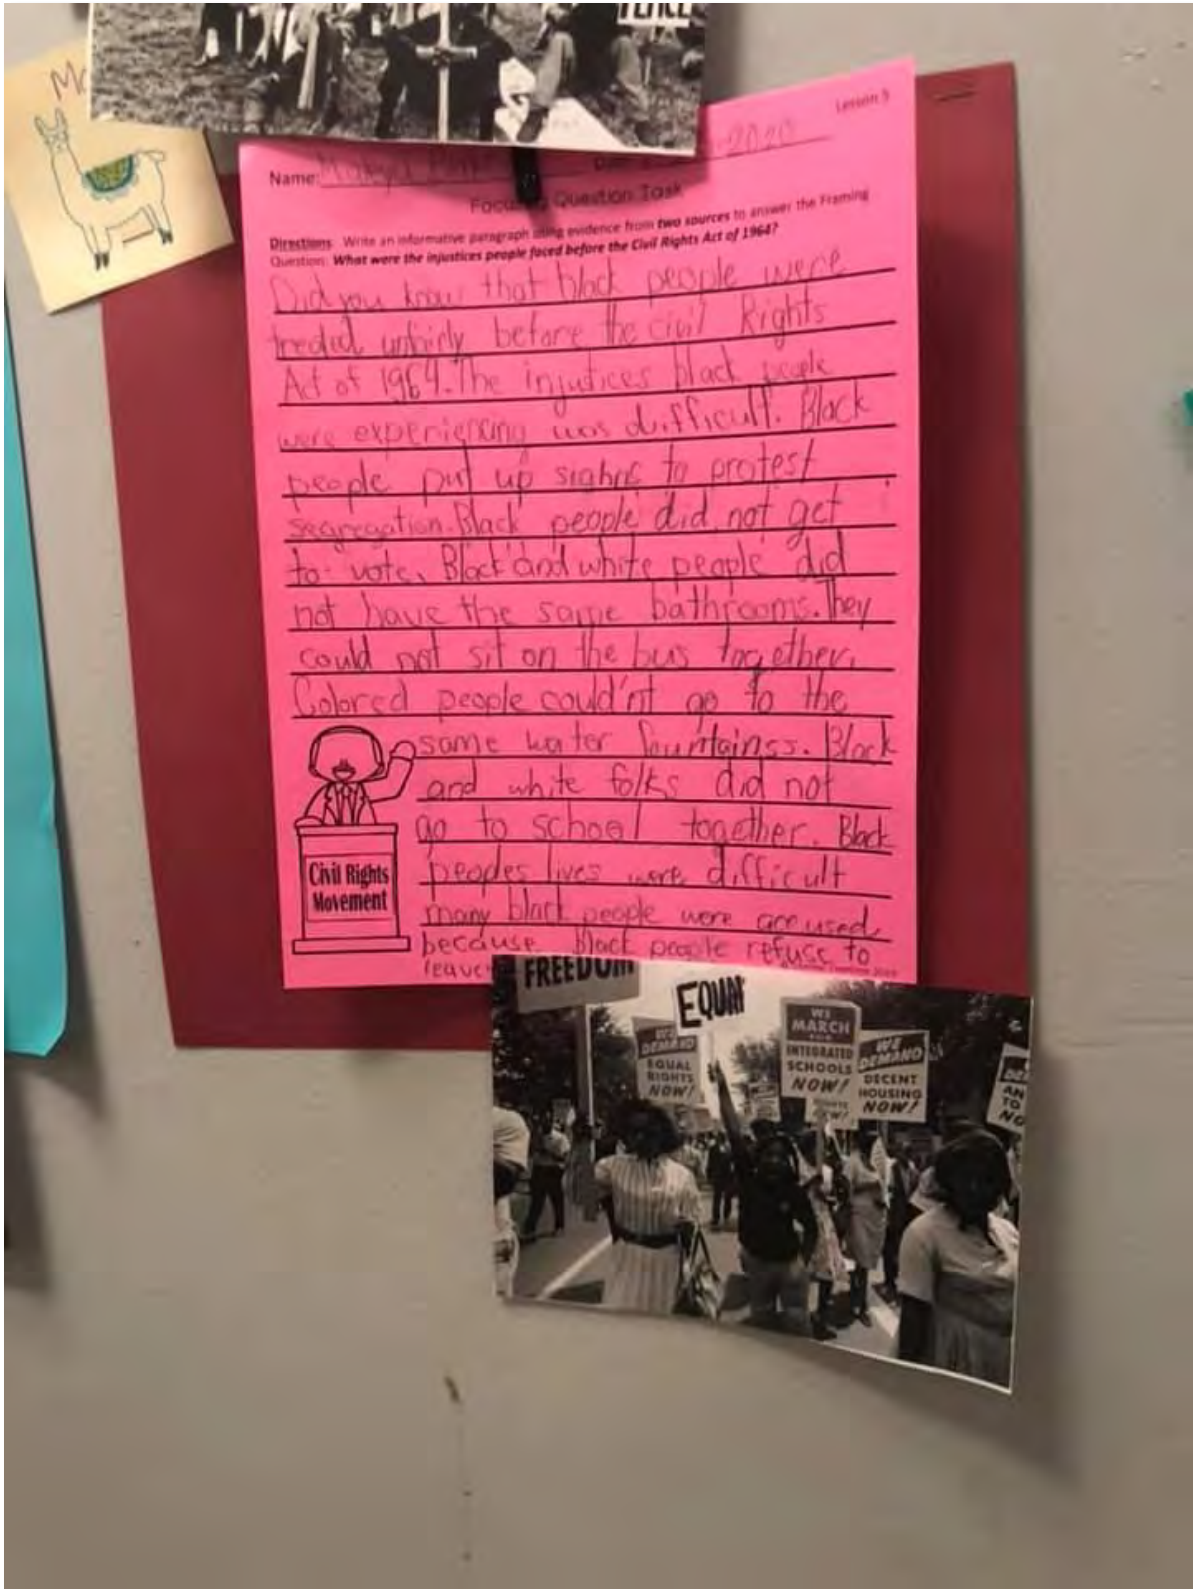 PEACE
Mc
Lesson 5
Name: Date: -2020
Focusing Question Task
Directions: Write an informative paragraph using evidence from two sources to answer the Framing
Question: What were the injustices people faced before the Civil Rights Act of 1964?
Did you know that black people were
treated unfairly before the civil Rights
Act of 1964. The injustices black people
were experiencing was difficult. Black
people put up sighns to protest
segregation. Black people did not get
to vote. Black and white people did
not have the same bathrooms. They
could not sit on the bus together.
Colored people could'nt go to the
same water fountainss. Black
and white folks did not
go to school together. Black
peoples lives were difficult
many black people were accused
because black people refuse to
leave
Civil Rights
Movement
FREEDOM
EQUAL
WE
DEMAND
EQUAL
RIGHTS
NOW!
WE
MARCH
FOR
INTEGRATED
SCHOOLS
NOW!
WE
DEMAND
DECENT
HOUSING
NOW!
AN
TO
NO